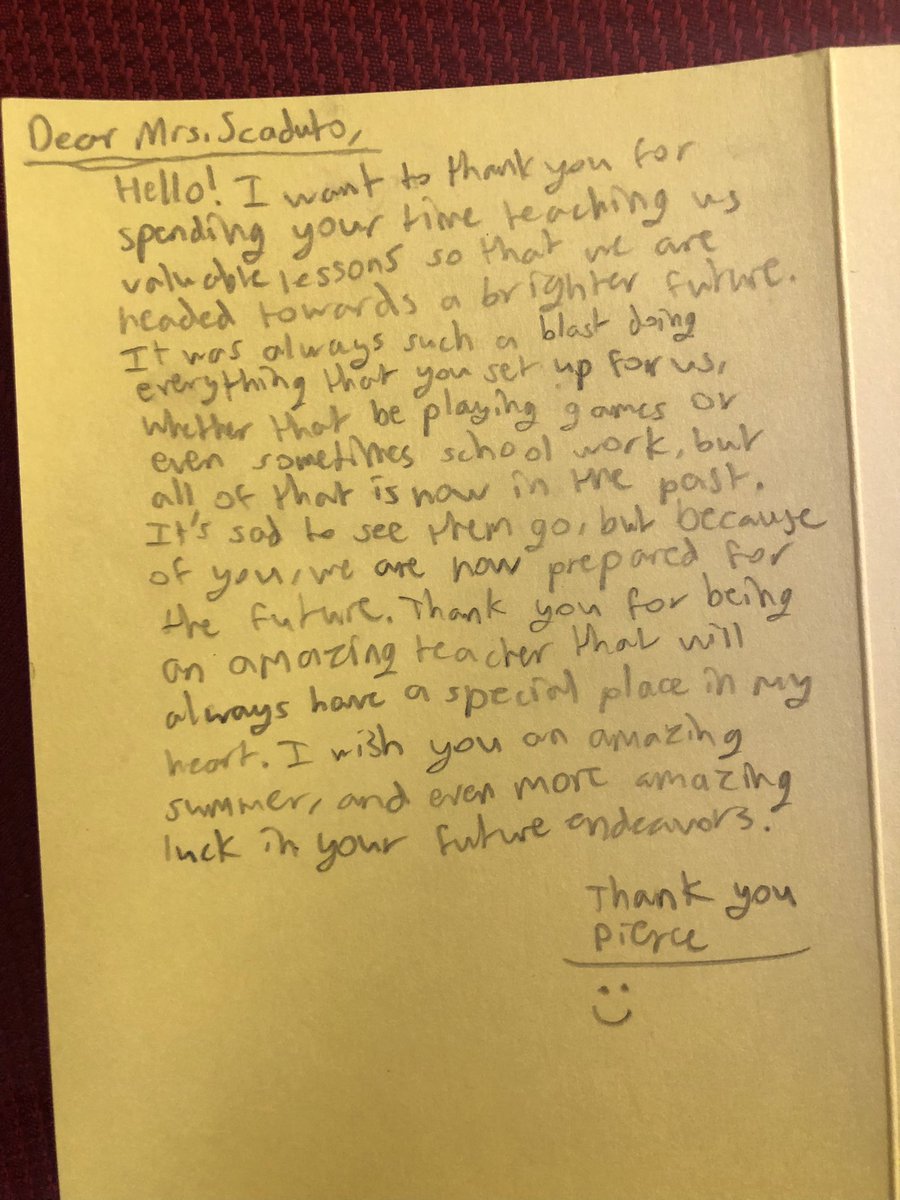 Dear Mrs. Scaduto,
Hello! I want to thank you for
spending your time teaching us
valuable lessons so that we are
headed towards a brighter future.
It was always such a blast doing
everything that you set up for us,
whether that be playing games or
even sometimes school work, but
all of that is now in the past.
It's sad to see them go, but because
of you, we are now prepared for
the future. Thank you for being
an amazing teacher that will
always have a special place in my
heart. I wish you an amazing
summer, and even more amazing
luck in your future endeavors.
Thank you
Pierce